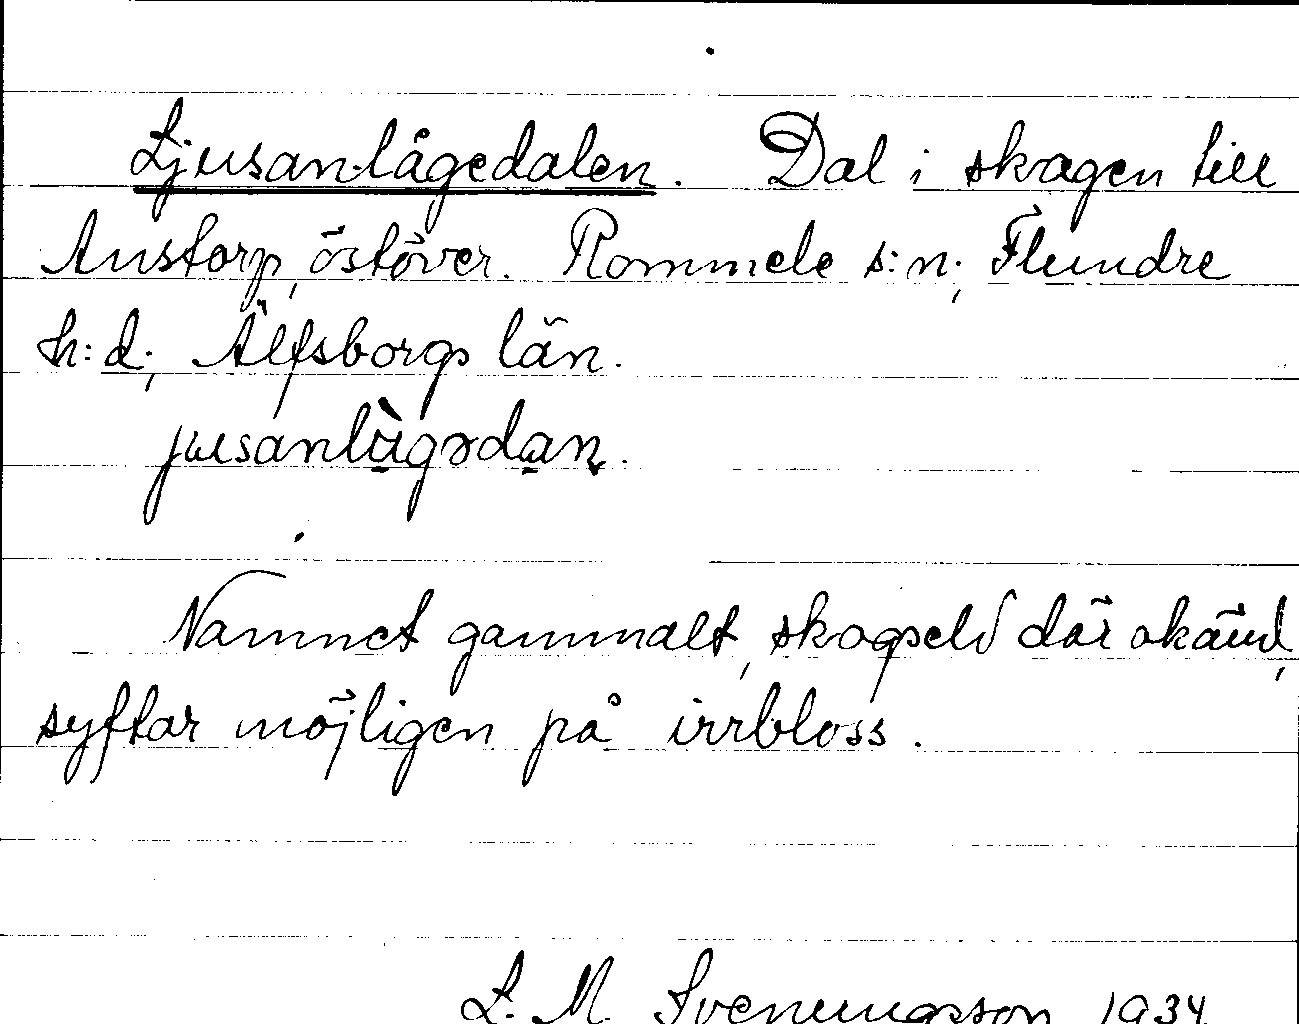 Ljusanlågedalen. Dal i skogen till
Anstorp, östöver. Rommele s:n; Flundre
h:d; Älfsborgs län.
jusanlùgədan.
Namnet gammalt, skogseld där okänd,
syftar möjligen på irrbloss.
L. M. Svenungsson 1934